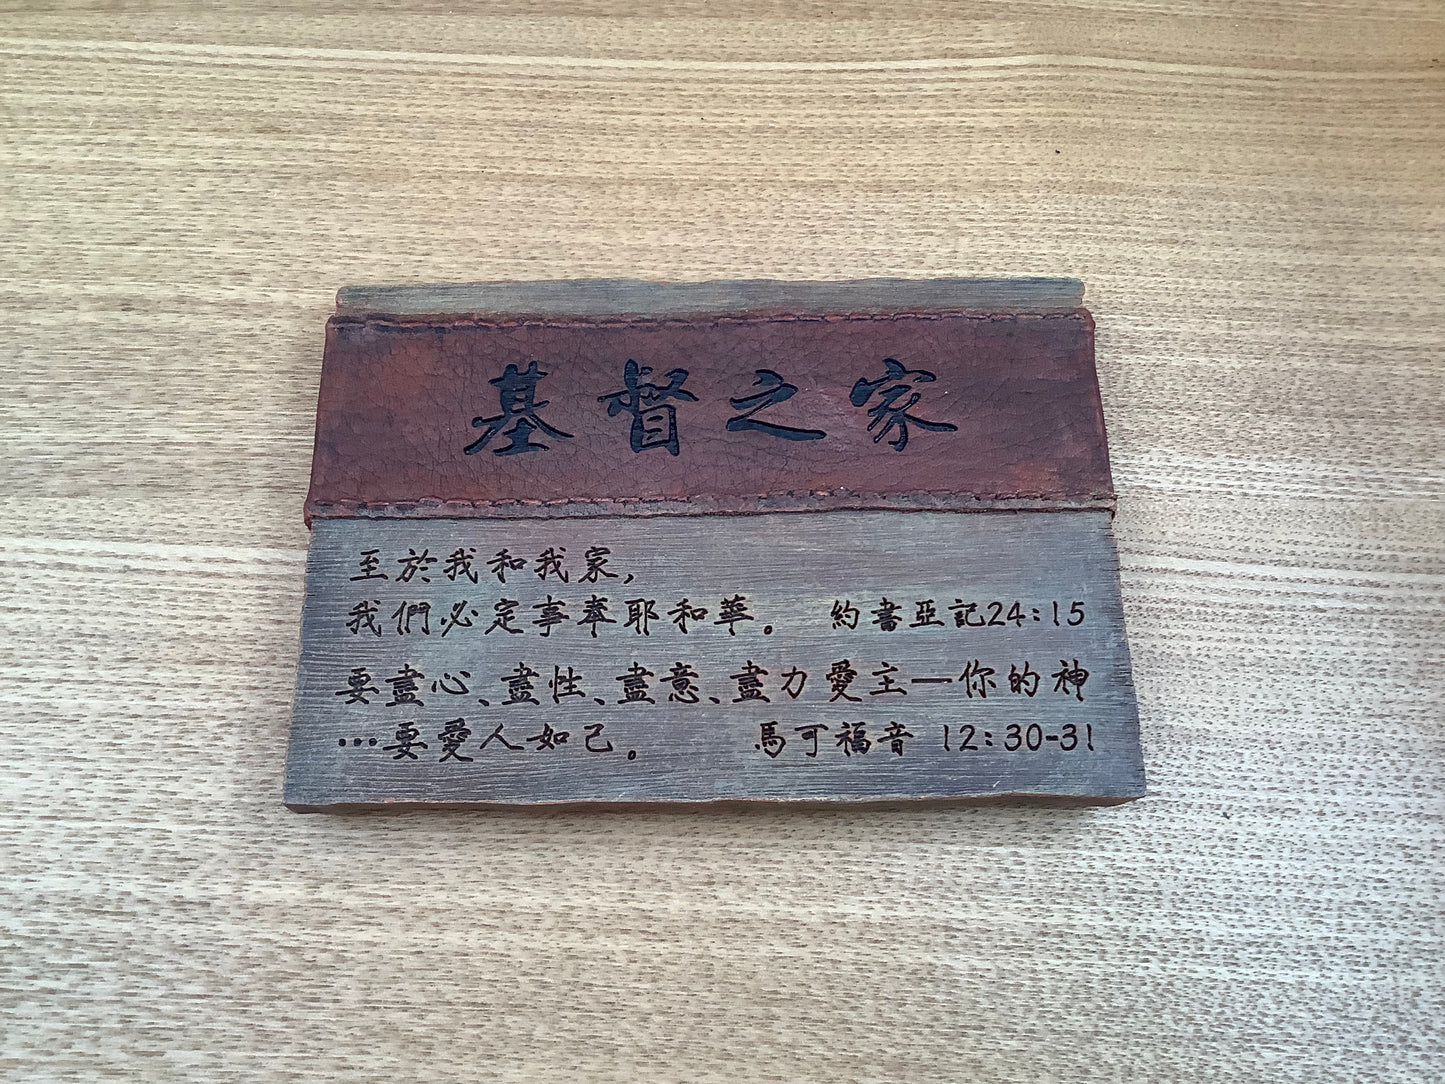 基督之家
至於我和我家,
我們必定事奉耶和華。 約書亞記24:15
要盡心、盡性、盡意、盡力愛主—你的神
…要愛人如己。 馬可福音 12:30-31